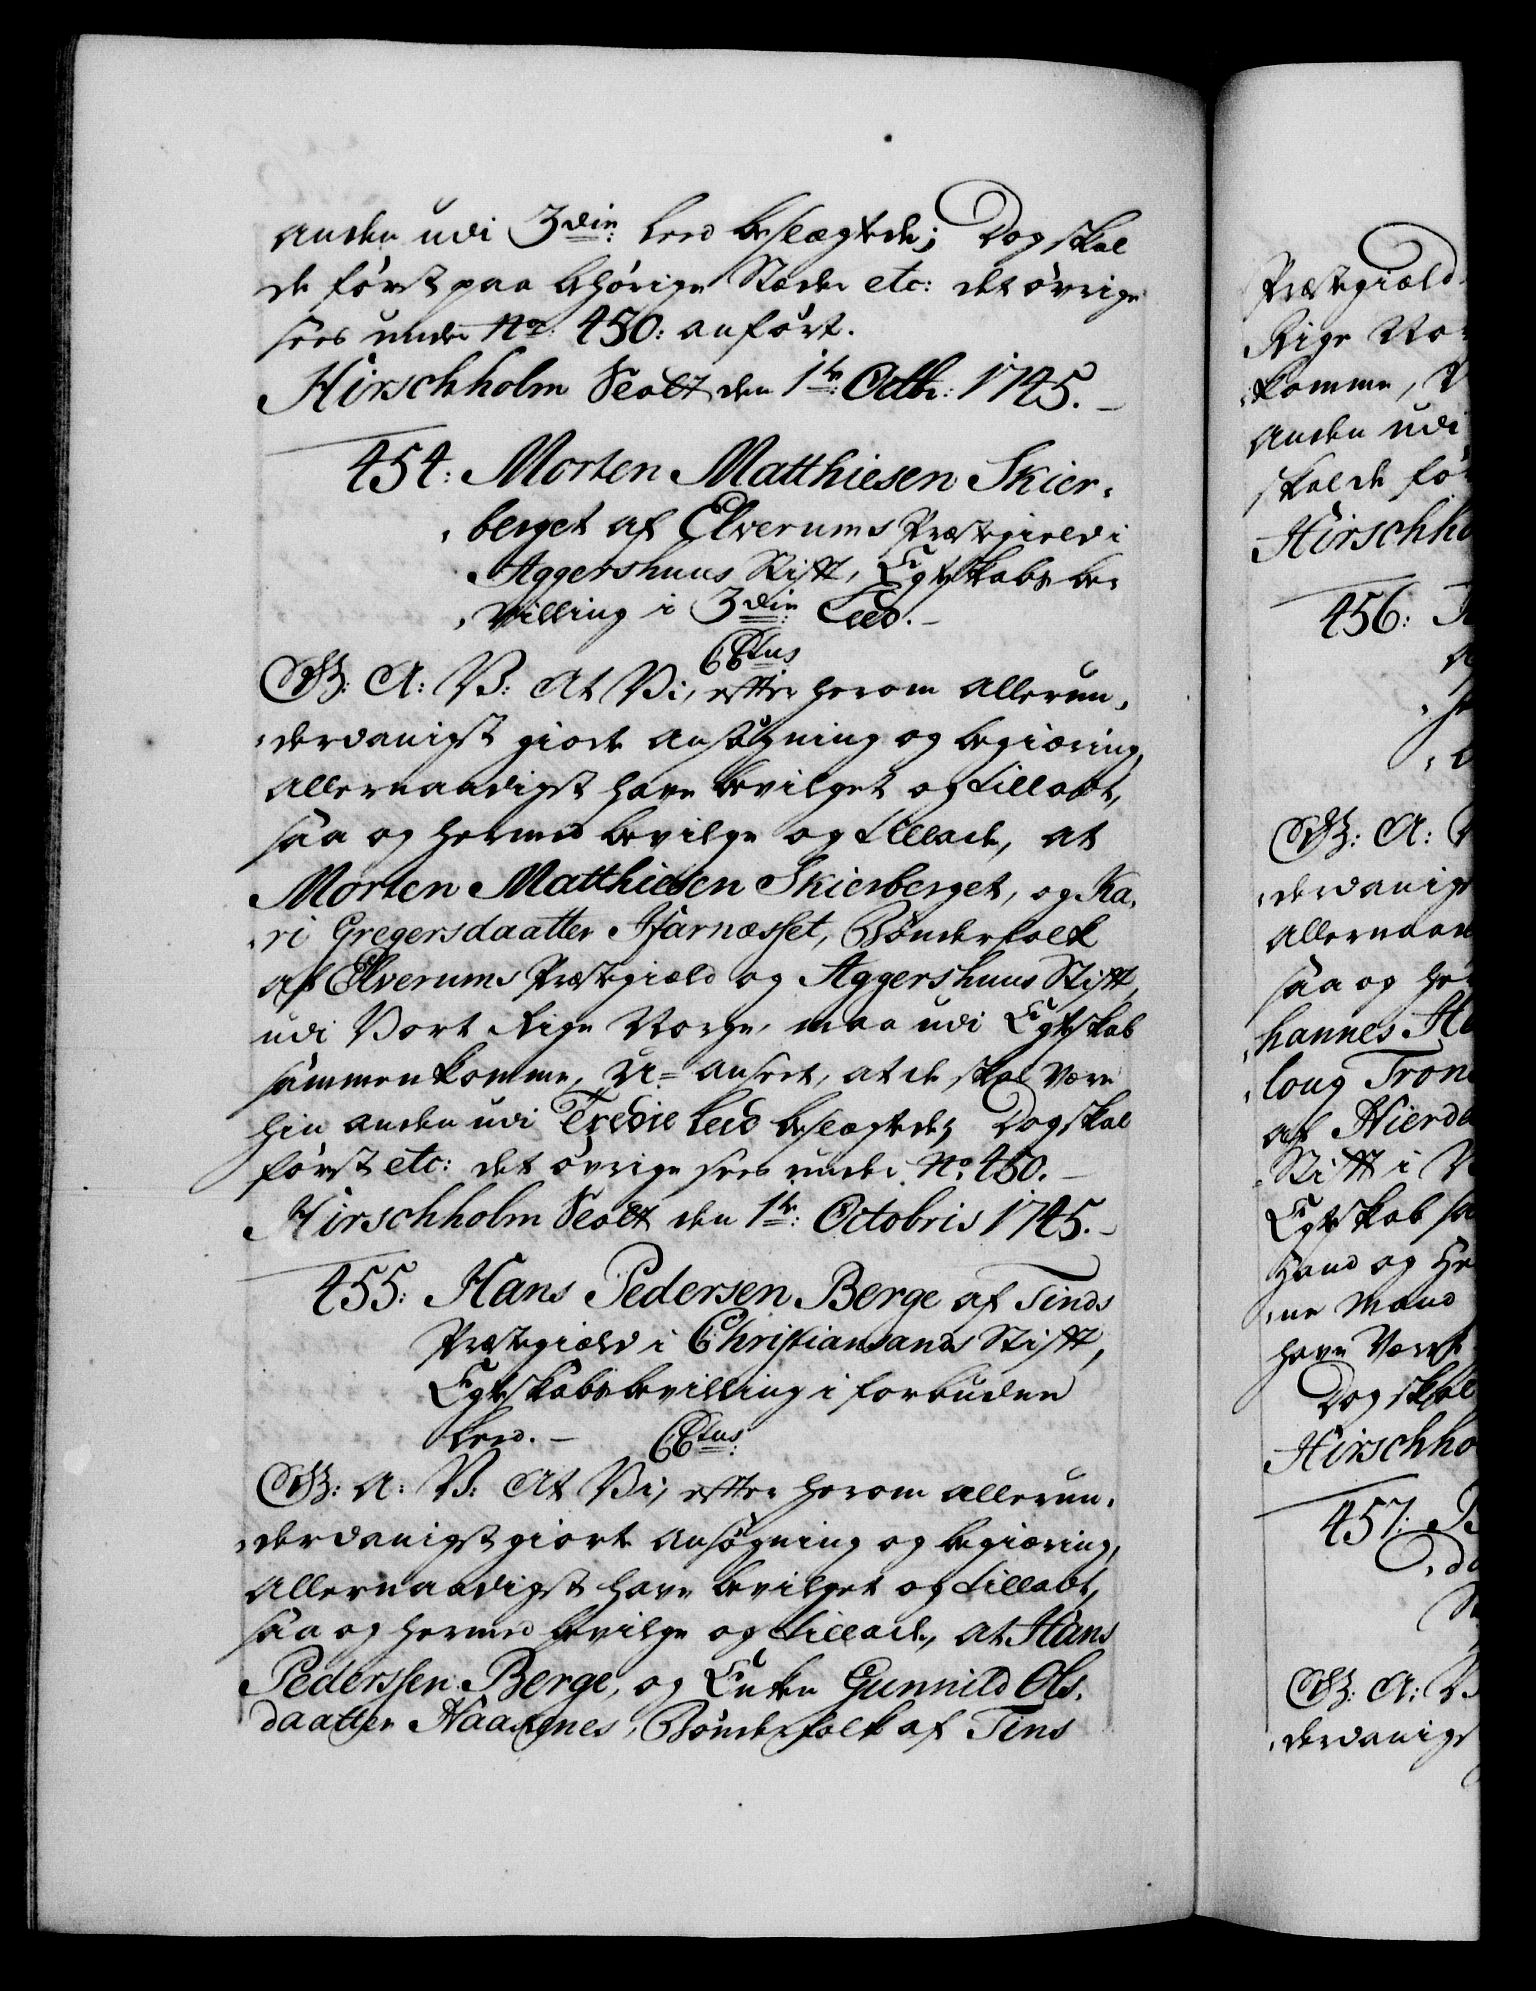 anden udi 3die: Leed beslægtede; Dog skal
de först paa behörige Stæder etc: det övrige
sees under No: 450: anfört.
Hirschholm Slott den 1te: Octbr: 1745.
454: Morten Matthiesen Skier-
-berget af Elverums Præstegield i
Aggershuus Stift, Egteskabs be-
-villing i 3die: Leed.
CCtus
G: A: V: At Vi, efter herom allerun-
-derdanigst giorte ansögning og begiæring,
allernaadigst have bevilget og tilladt,
saa og hermed bevilge og tillade, at
Morten Matthiesen Skierberget, og Ka-
-ri Gregersdaatter Ifarnæsset, Bönderfolk
af Elverums Præstegiæld og Aggershuus Stift,
udi Vort Rige Norge, maa udi Egteskab
sammenkomme, U-anseet, at de skal være
hin anden udi Tredie Leed beslægtede; Dog skal
först etc: det övrige sees under No: 450.
Hirschholm Slott den 1te: Octobris 1745.
455: Hans Pedersen Berge af Tinds
Præstegiæld i Christiansands Stift,
Egteskabsbevilling i forbuden
Leed.
CCtus:
G: A: V: At Vi, efter herom allerun-
-derdanigst giorte ansögning og begiæring,
allernaadigst have bevilget og tilladt,
saa og hermed bevilge og tillade, at Hans
Pederssen Berge, og Enken Gunnild Ols-
daatter Haagnes, Bönderfolk af Tins
Præstegiæld
Rige Nor
komme, U
anden udi
skal de för
Hirschho
456:
G: A:
-derdanigs
allernaad
saa og her
-hannes
-loug Tron
af Hierda
Stift i N
Egteskab sa
Hand og He
-ne Mand
have været
Dog skal
Hirschho
457:
G: A: V
-derdanigs